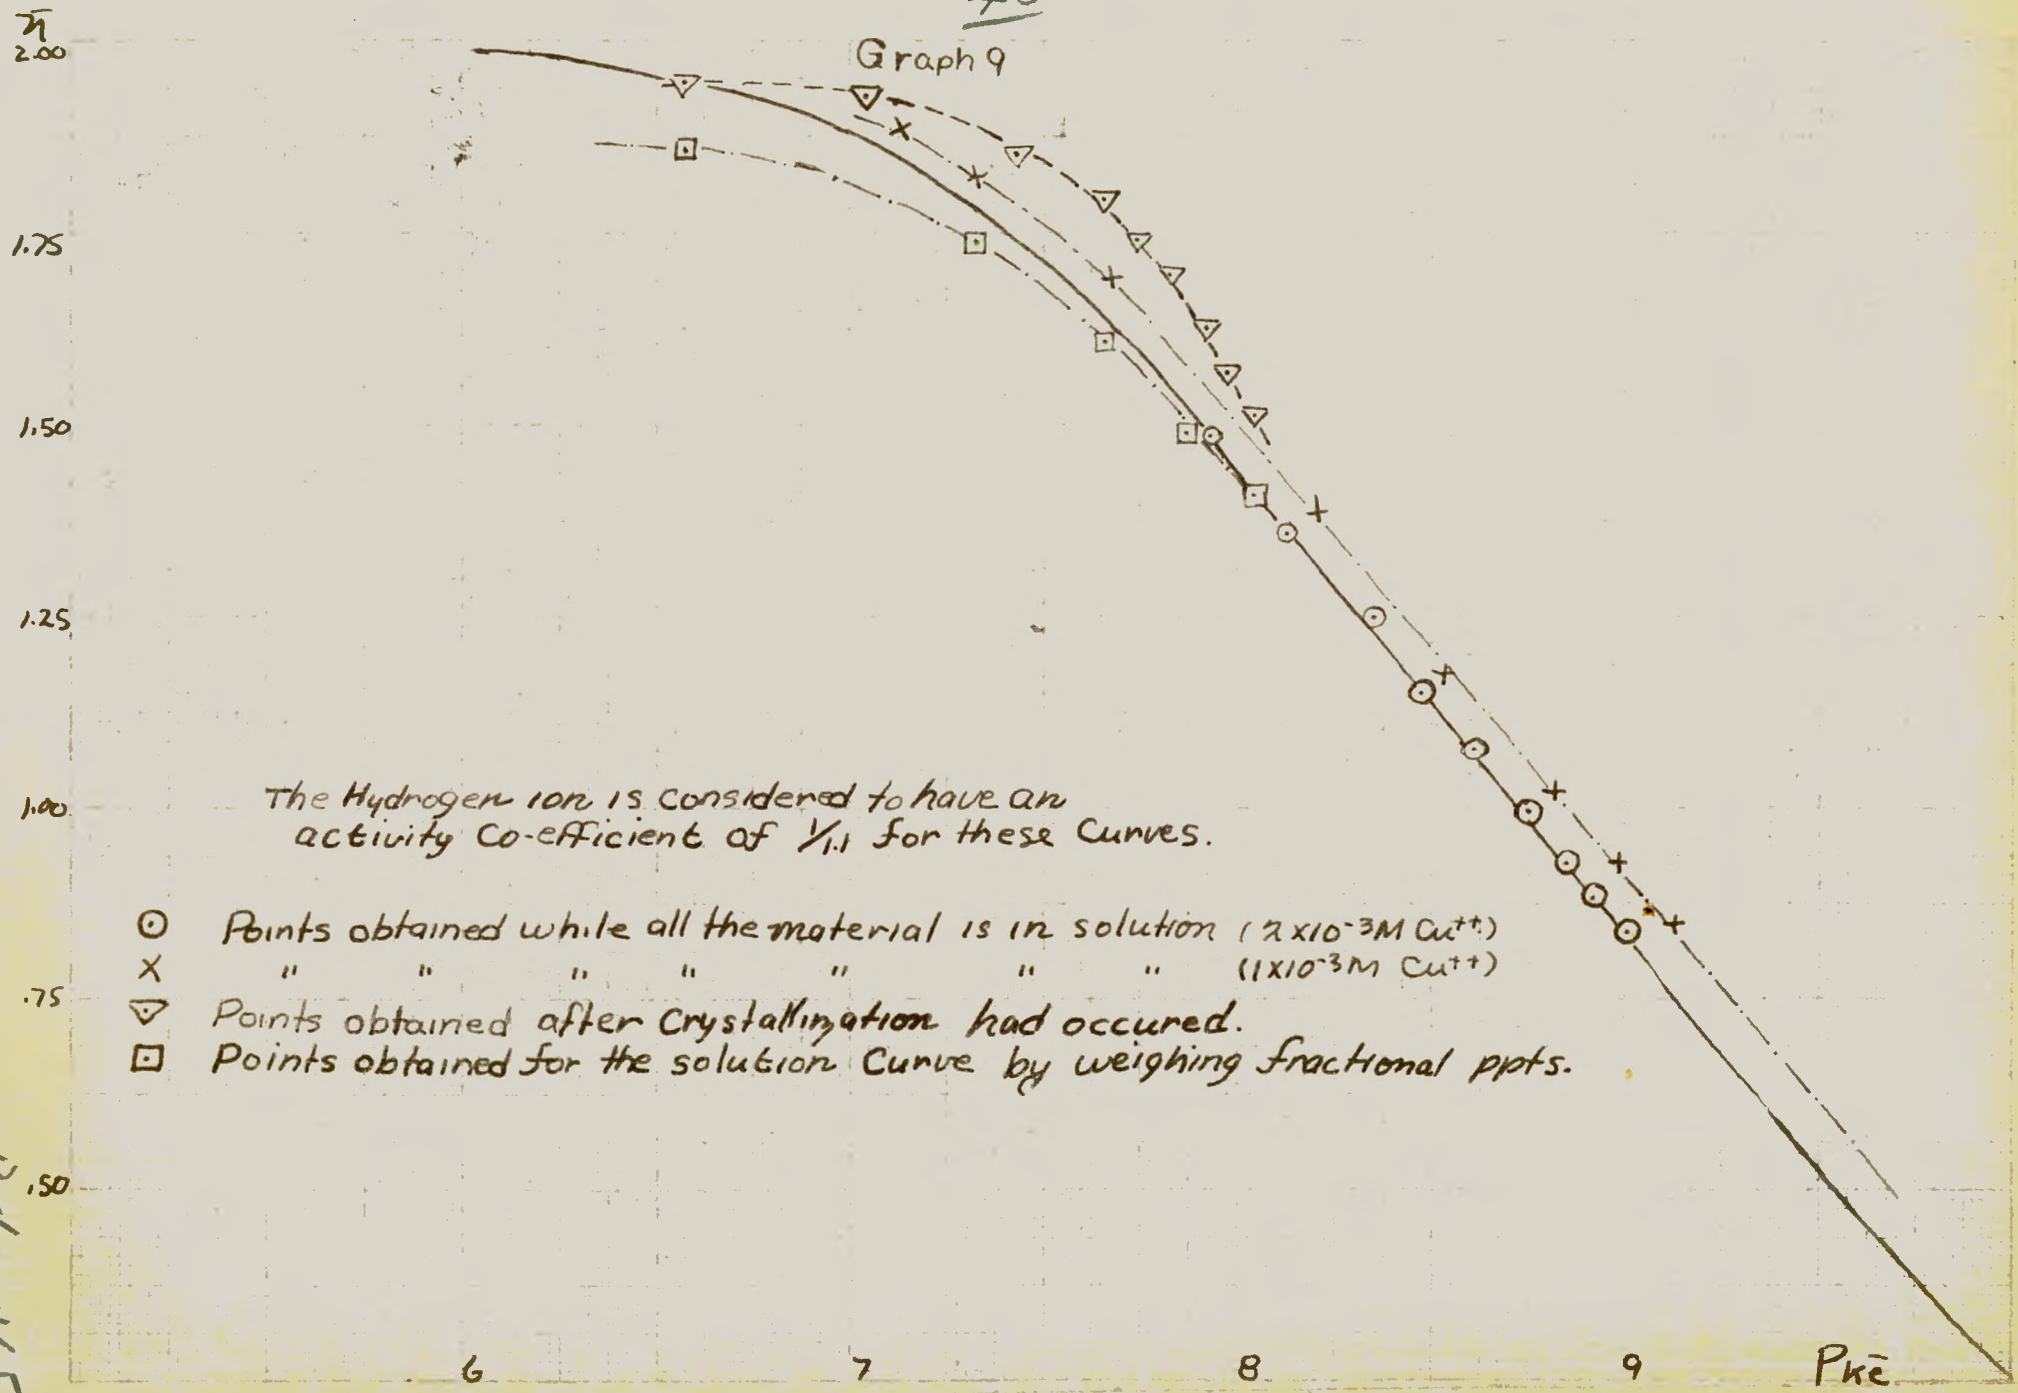 n̄
Graph 9
2.00
1.75
1.50
1.25
1.00
.75
.50
The Hydrogen ion is considered to have an
activity Co-efficient of 1/1.1 for these Curves.
⊙ Points obtained while all the material is in solution (2x10-3M Cu++)
X " " " " " " " (1x10-3M Cu++)
▽ Points obtained after Crystallization had occured.
⊡ Points obtained for the solution Curve by weighing fractional ppts.
6 7 8 9 Pkē